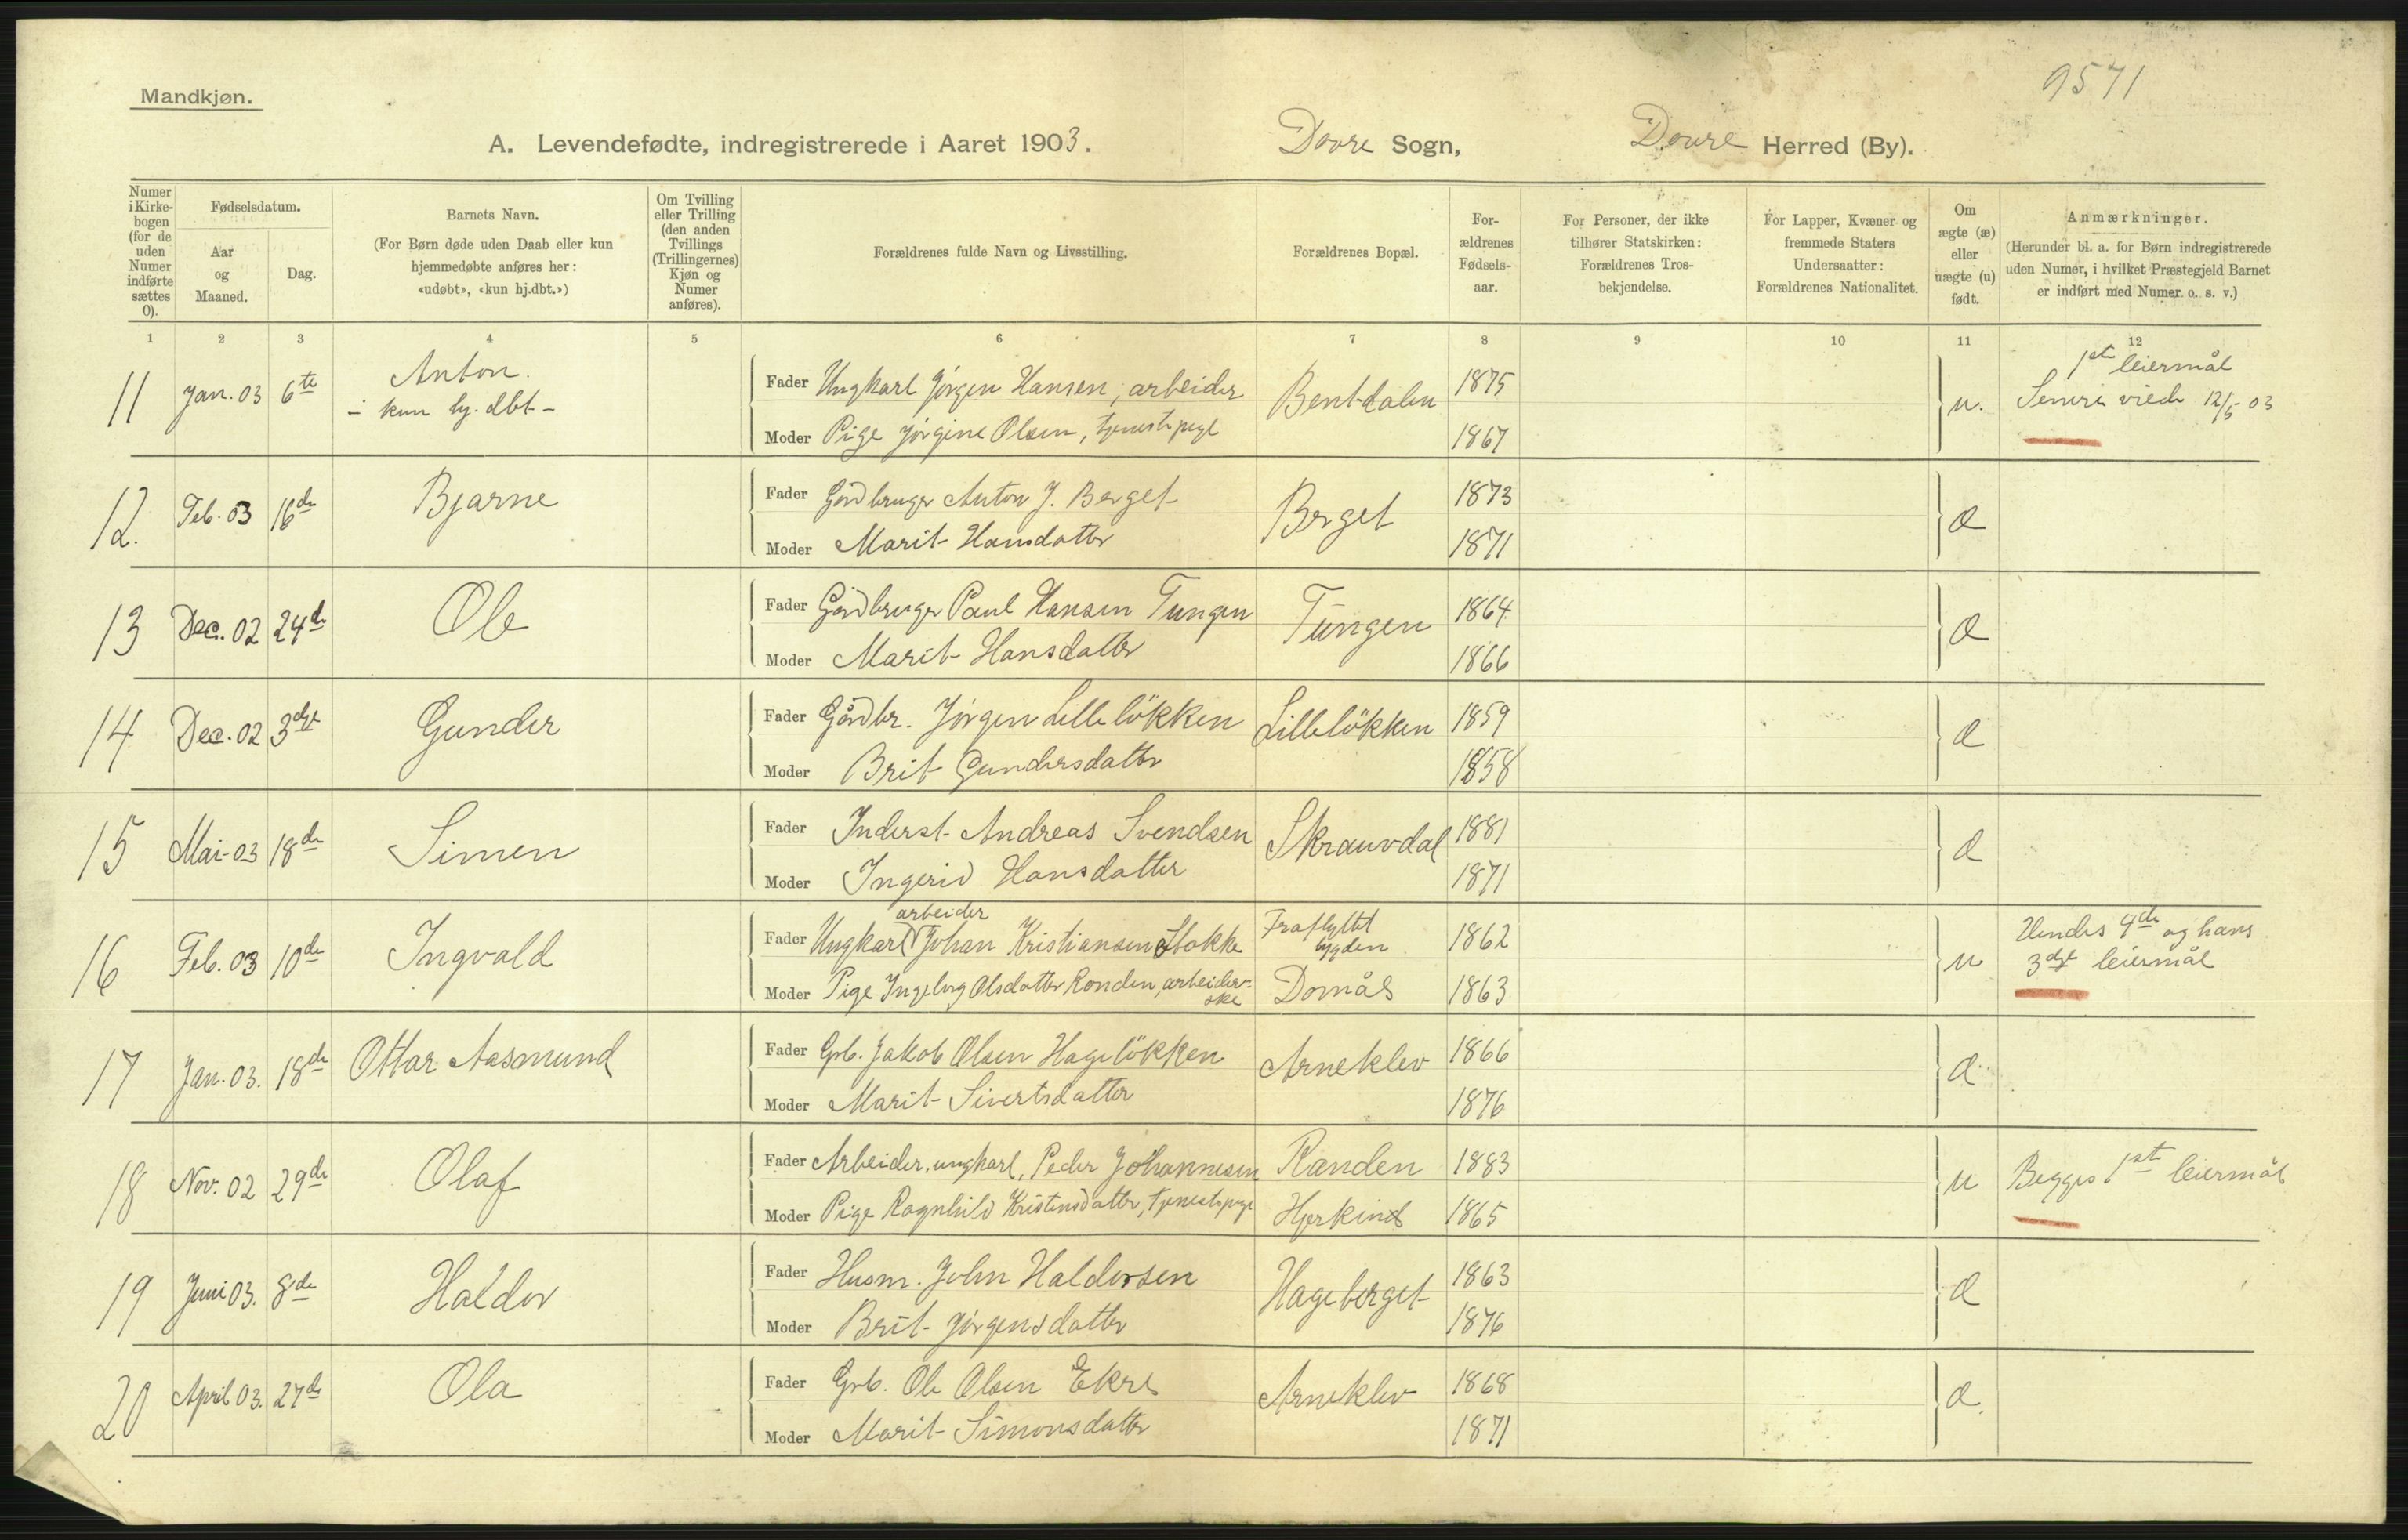 9571
Mandkjøn.
A. Levendefødte, indregistrerede i Aaret 1903. Dovre Sogn, Dovre Herred (By).
Numer i Kirkebogen (for de uden Numer indførte sættes 0).
Fødselsdatum.
Aar og Maaned.
Dag.
Barnets Navn.
(For Børn døde uden Daab eller kun
hjemmedøbte anføres her:
«udøbt», «kun hj.dbt.»)
Om Tvilling
eller Trilling
(den anden
Tvillings
(Trillingernes)
Kjøn og
Numer
anføres).
Forældrenes fulde Navn og Livsstilling.
Forældrenes Bopæl.
For-
ældrenes
Fødsels-
aar.
For Personer, der ikke
tilhører Statskirken:
Forældrenes Tros-
bekjendelse.
For Lapper, Kvæner og
fremmede Staters
Undersaatter:
Forældrenes Nationalitet.
Om
ægte (æ)
eller
uægte (u)
født.
Anmærkninger.
(Herunder bl. a. for Børn indregistrerede
uden Numer, i hvilket Præstegjeld Barnet
er indført med Numer o. s. v.)
1 2 3 4 5 6 7 8 9 10 11 12
11 Jan. 03 6te Anton.
- kun hj. dbt -
Fader Ungkarl Jörgen Hansen, arbeider Bentdalen 1875
Moder Pige Jörgine Olsen, tjenestepige 1867
u. 1ste leiermål
Senere viede 12/5 03
12. Feb. 03 16de Bjarne
Fader Gårdbruger Anton J. Berget Berget 1873
Moder Marit Hansdatter 1871
æ
13 Dec. 02 24de Ole
Fader Gårdbruger Paul Hansen Tungen Tungen 1864
Moder Marit Hansdatter 1866
æ
14 Dec. 02 3dje Gunder
Fader Gårdbr. Jörgen Lillelökken Lillelökken 1859
Moder Brit Gundersdatter 1858
æ
15 Mai 03 18de Simen
Fader Inderst Andreas Svendsen Skrauvdal 1881
Moder Ingerid Hansdatter 1871
æ
16 Feb. 03 10de Ingvald
arbeider
Fader Ungkarl Johan Kristiansen Stokke Fraflyttet bygden 1862
Moder Pige Ingeborg Olsdatter Ronden, arbeiderske Domås 1863
u Hendes 4de og hans
3dje leiermål
17 Jan. 03. 18de Ottar Aasmund
Fader Grb. Jakob Olsen Hagelökken Arneklev 1866
Moder Marit Sivertsdatter 1876
æ
18 Nov. 02 29de Olaf
Fader Arbeider, ungkarl, Peder Johannesen Randen 1883
Moder Pige Ragnhild Kristensdatter, tjenestepige Hjerkind 1865
u Begges 1ste leiermål
19 Juni 03. 8de Haldor
Fader Husm. John Haldorsen Hageberget 1863
Moder Brit Jörgensdatter 1876
æ
20 April 03. 27de Ola
Fader Grb. Ole Olsen Ekre Arneklev 1868
Moder Marit Simonsdatter 1871
æ